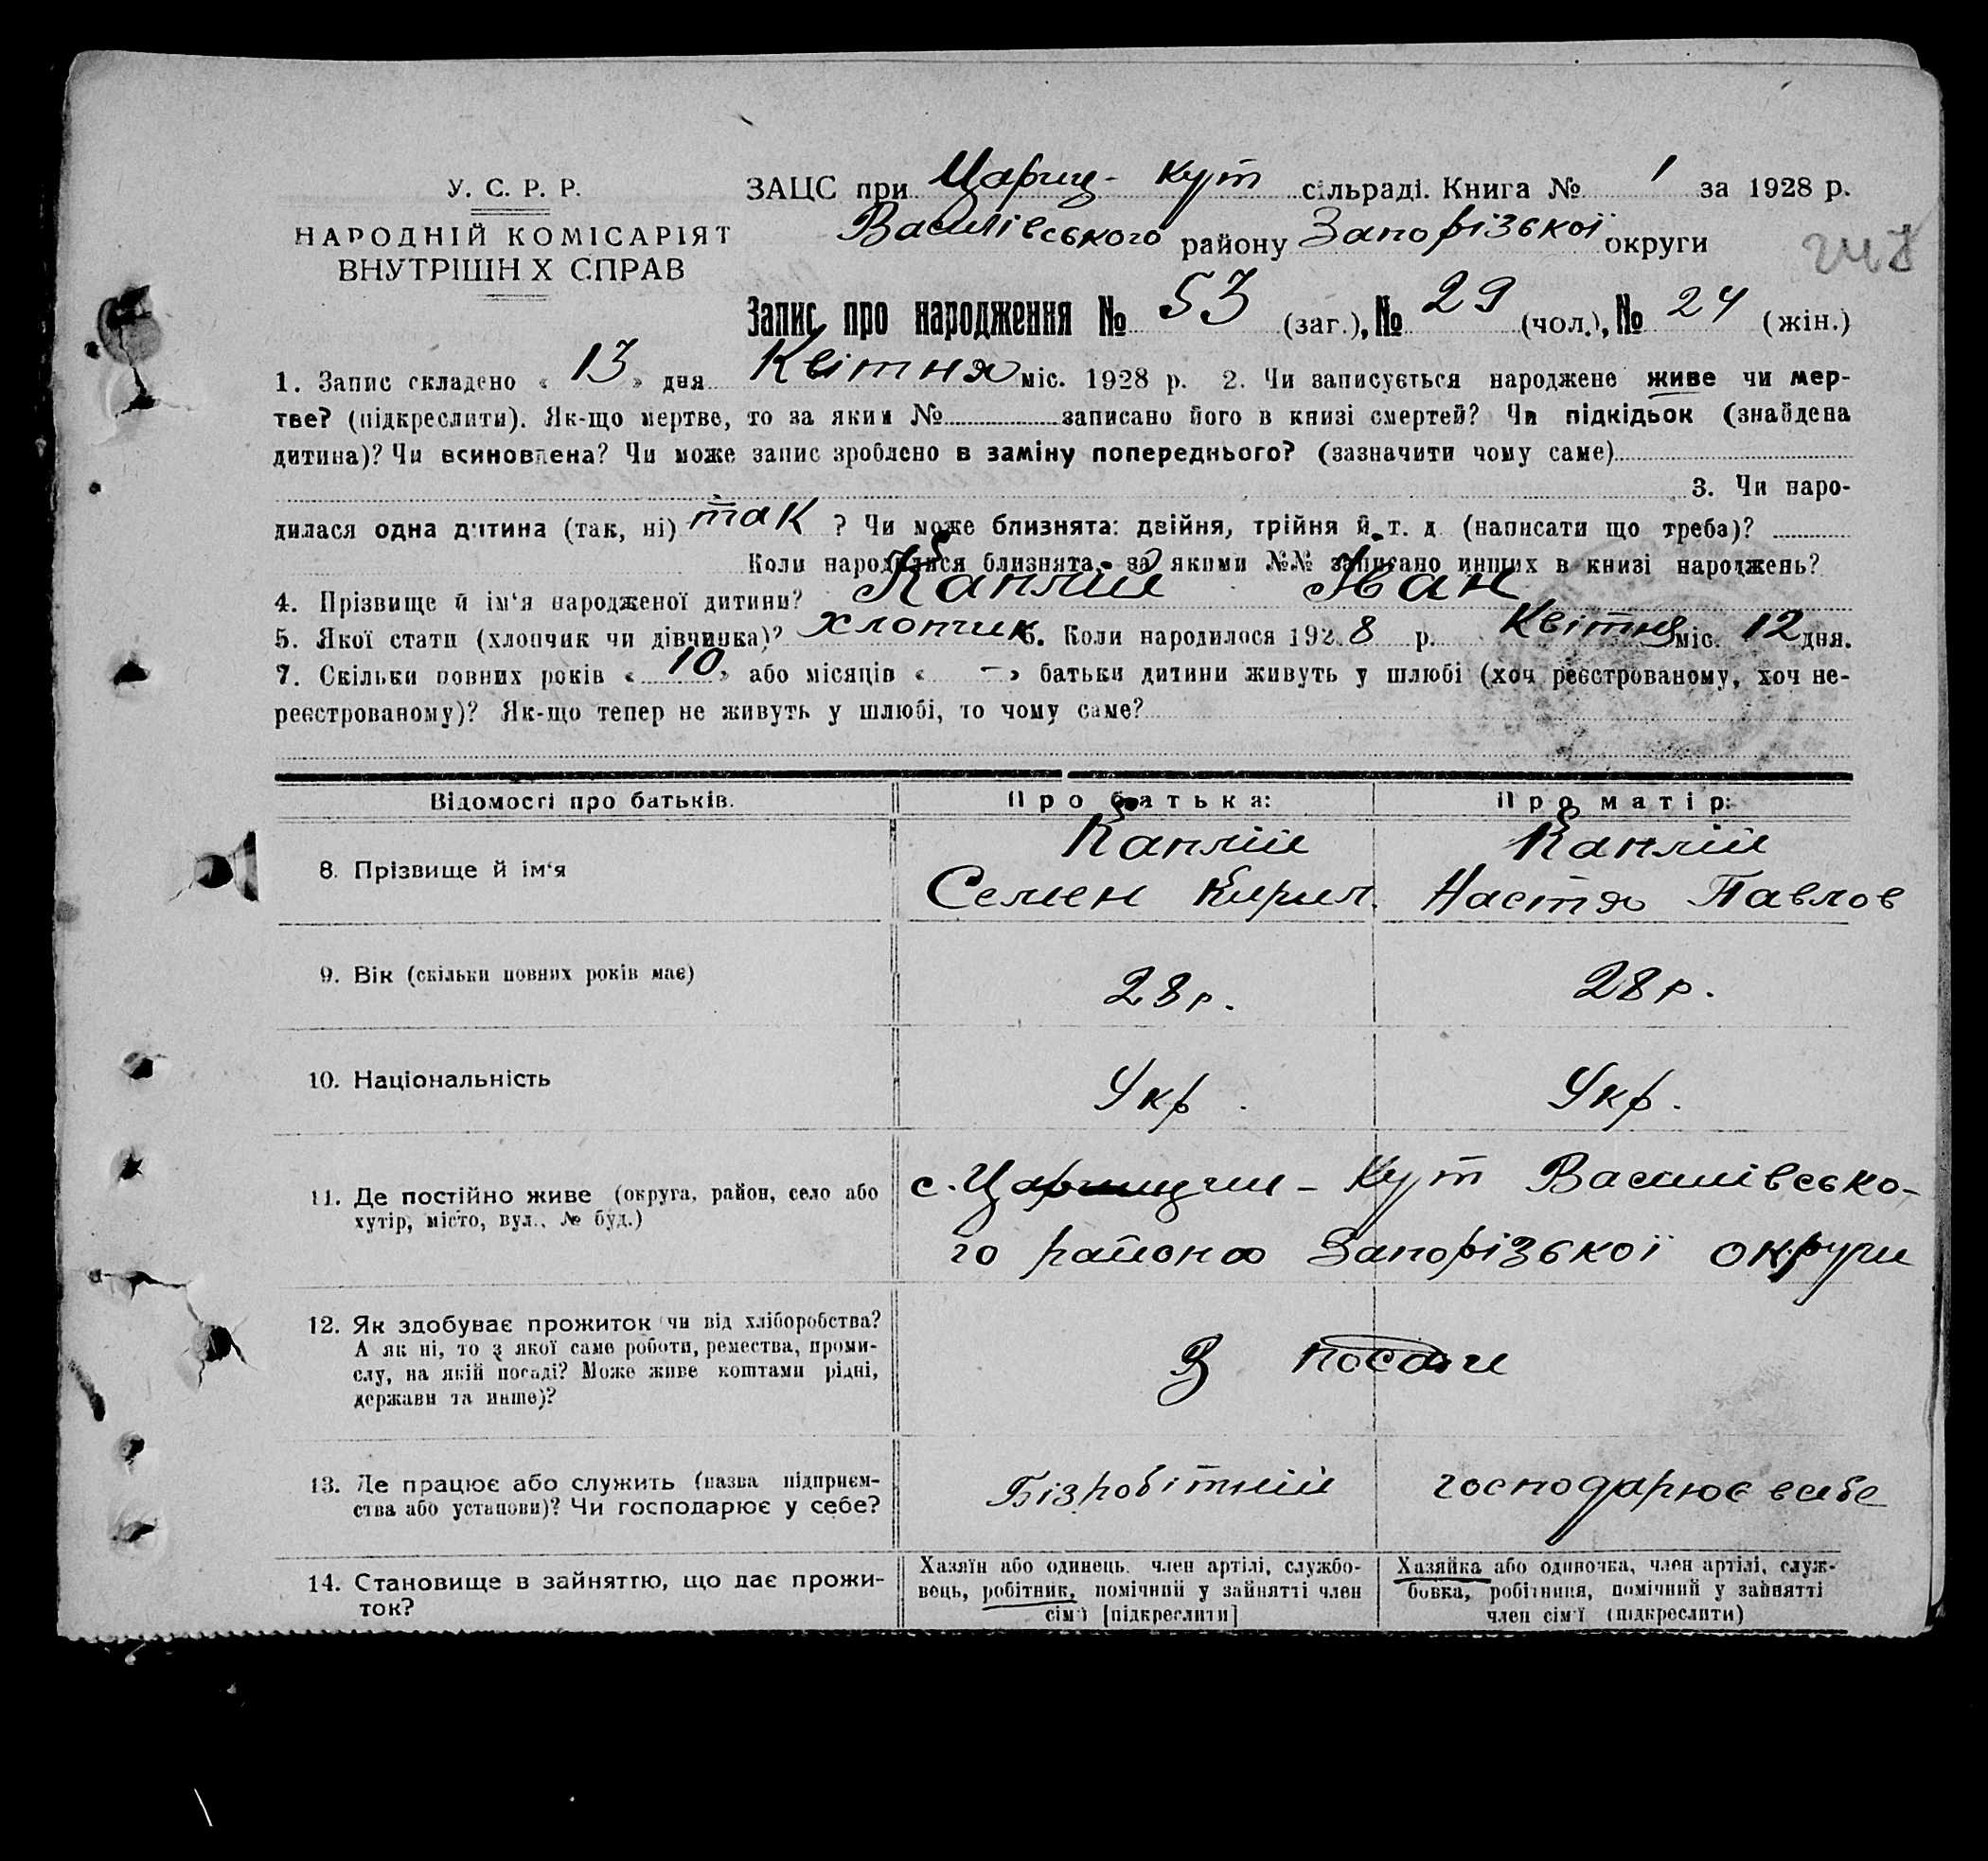 У. С. Р. Р.
НАРОДНІЙ КОМІСАРІЯТ
ВНУТРІШН Х СПРАВ
ЗАЦС при Цариц- Кут сільраді. Книга № 1 за 1928 р.
Василівського району Запорізької округи
248
Запис про народження № 53 (заг.), № 29 (чол.), № 24 (жін.)
1. Запис складено « 13 » дня Квітня міс. 1928 р. 2. Чи записується народжене живе чи мер-
тве? (підкреслити). Як-що мертве, то за яким № записано його в книзі смертей? Чи підкідьок (знайдена
дитина)? Чи всиновлена? Чи може запис зроблено в заміну попереднього? (зазначити чому саме)
3. Чи наро-
дилася одна дитина (так, ні) так ? Чи може близнята: двійня, трійня й т. д. (написати що треба)?
Коли народилися близнята, за якими №№ записано инших в книзі народжень?
4. Прізвище й ім'я народженої дитини? Каплій Іван
5. Якої стати (хлопчик чи дівчинка)? хлопчик 6. Коли народилося 1928 р. Квітня міс. 12 дня.
7. Скільки повних років « 10 » або місяців « — » батьки дитини живуть у шлюбі (хоч реєстрованому, хоч не-
реєстрованому)? Як-що тепер не живуть у шлюбі, то чому саме?
Відомості про батьків. Про батька: Про матір:
8. Прізвище й ім'я Каплій Каплій
Семен Кирил. Настя Павлов
9. Вік (скільки повних років має) 28 р. 28 р.
10. Національність Укр. Укр.
11. Де постійно живе (округа, район, село або
хутір, місто, вул., № буд.)
с. Царицин - Кут Василівсько-
го района Запорізької округи
12. Як здобуває прожиток чи від хліборобства?
А як ні, то з якої саме роботи, ремества, проми-
слу, на якій посаді? Може живе коштами рідні,
держави та инше)?
З посади
13. Де працює або служить (назва підприєм-
ства або установи)? Чи господарює у себе?
Бізробітній господарює в себе
14. Становище в зайняттю, що дає прожи-
ток?
Хазяїн або одинець, член артілі, службо-
вець, робітник, помічний у зайнятті член
сім'ї [підкреслити]
Хазяйка або одиночка, член артілі, служ-
бовка, робітниця, помічний у зайнятті
член сім'ї (підкреслити)